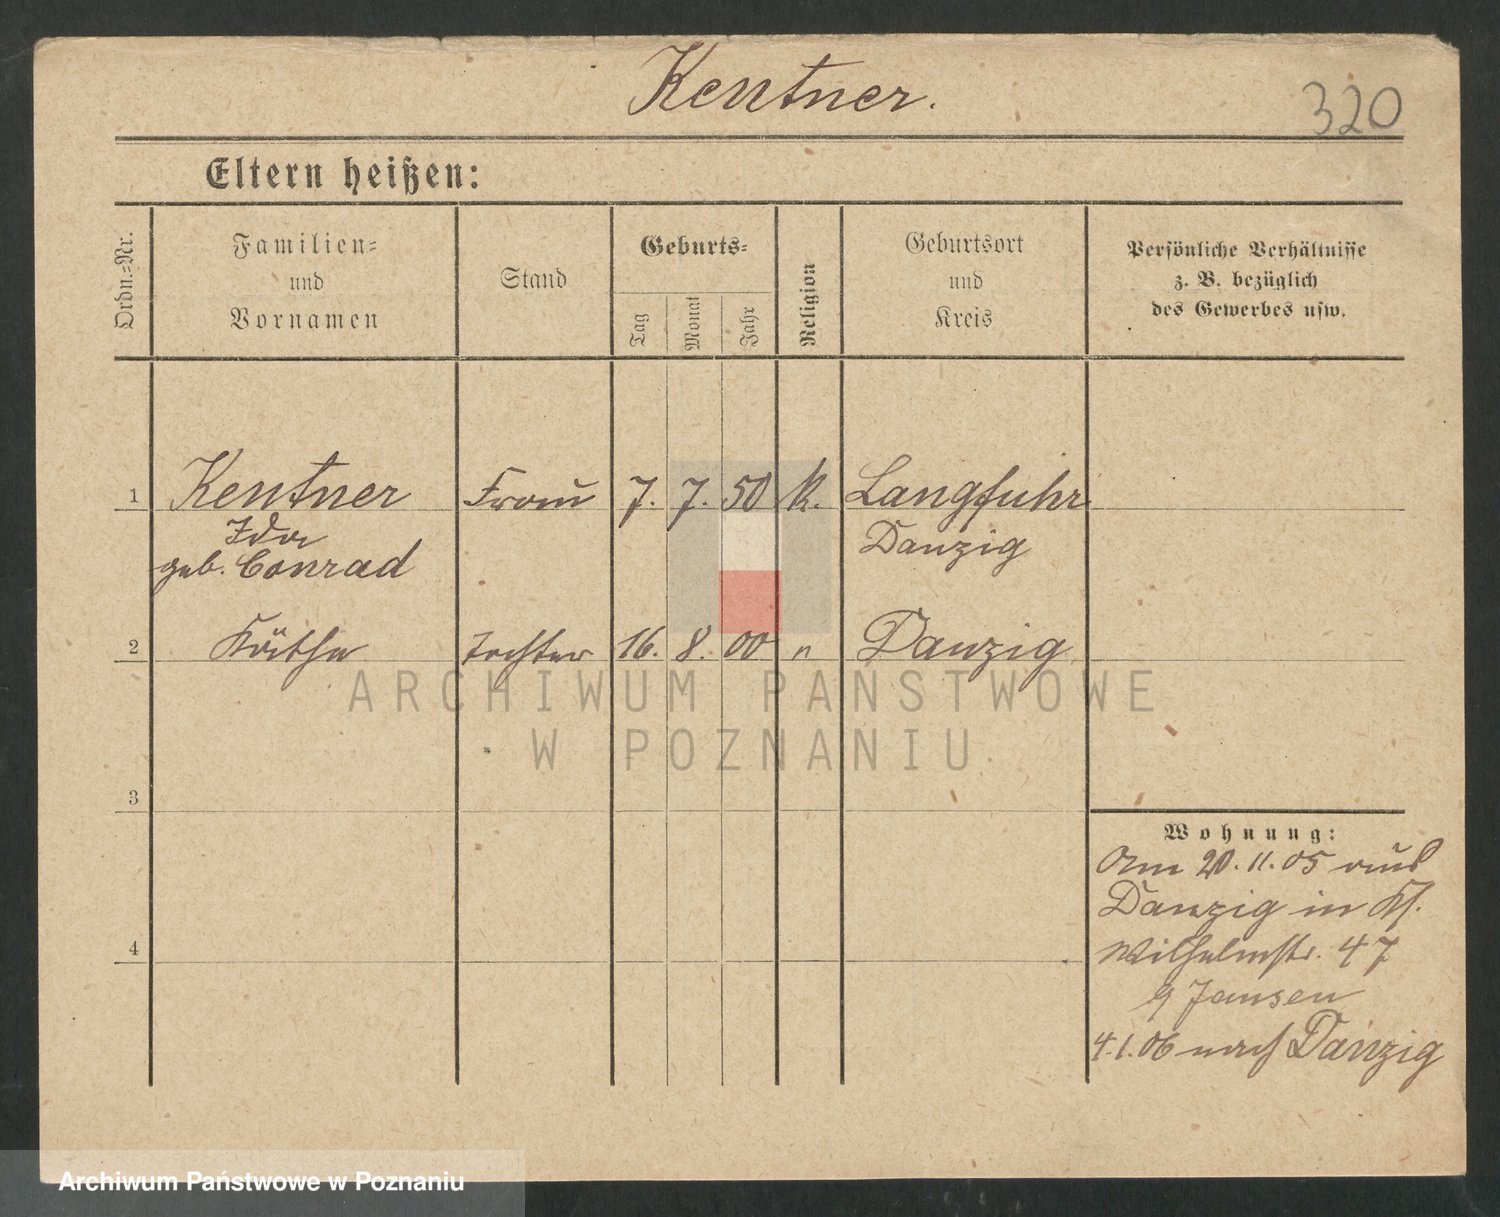 Kentner.
320
Eltern heißen:
Ordn.=Nr.
Familien=
und
Vornamen
Stand
Geburts=
Tag
Monat
Jahr
Religion
Geburtsort
und
Kreis
Persönliche Verhältnisse
z. B. bezüglich
des Gewerbes usw.
1 Kentner Frau 7. 7. 50 k. Langfuhr
Ida Danzig
geb. Conrad
2 Käthe Tochter 16. 8. 00 " Danzig
ARCHIWUM PAŃSTWOWE
W POZNANIU
3
Wohnung:
Am 20.11.05 aus
Danzig in
Wilhelmstr. 47
Jansen
4.1.06 nach Danzig
4
Archiwum Państwowe w Poznaniu